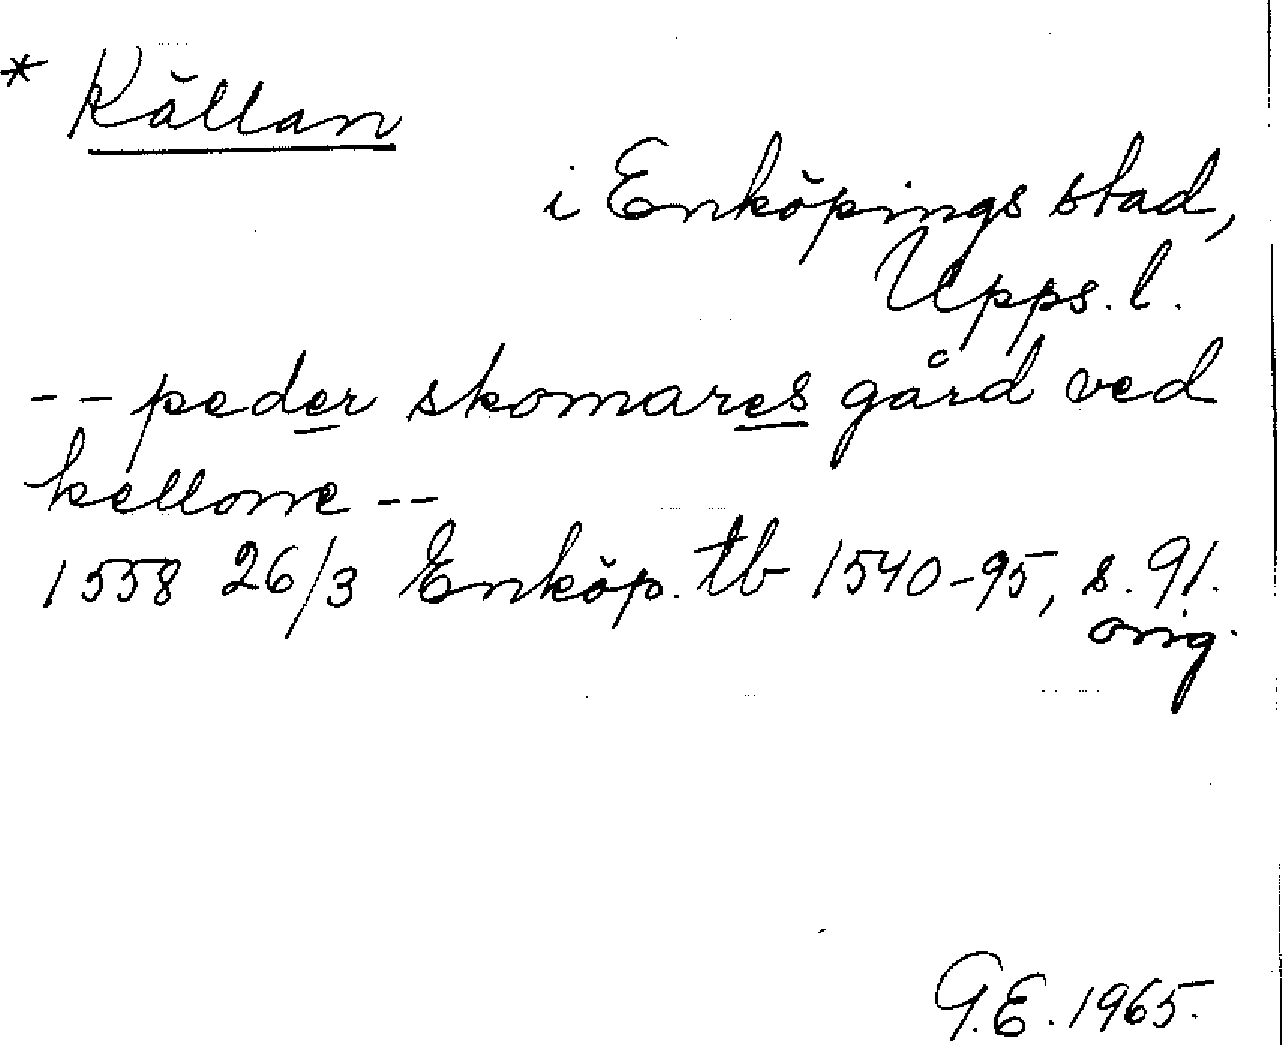 * Källan
i Enköpings stad,
Upps. l.
-- peder skomares gård ved
kellone --
1558 26/3 Enköp. tb 1540-95, s. 91.
orig.
G.E. 1965.